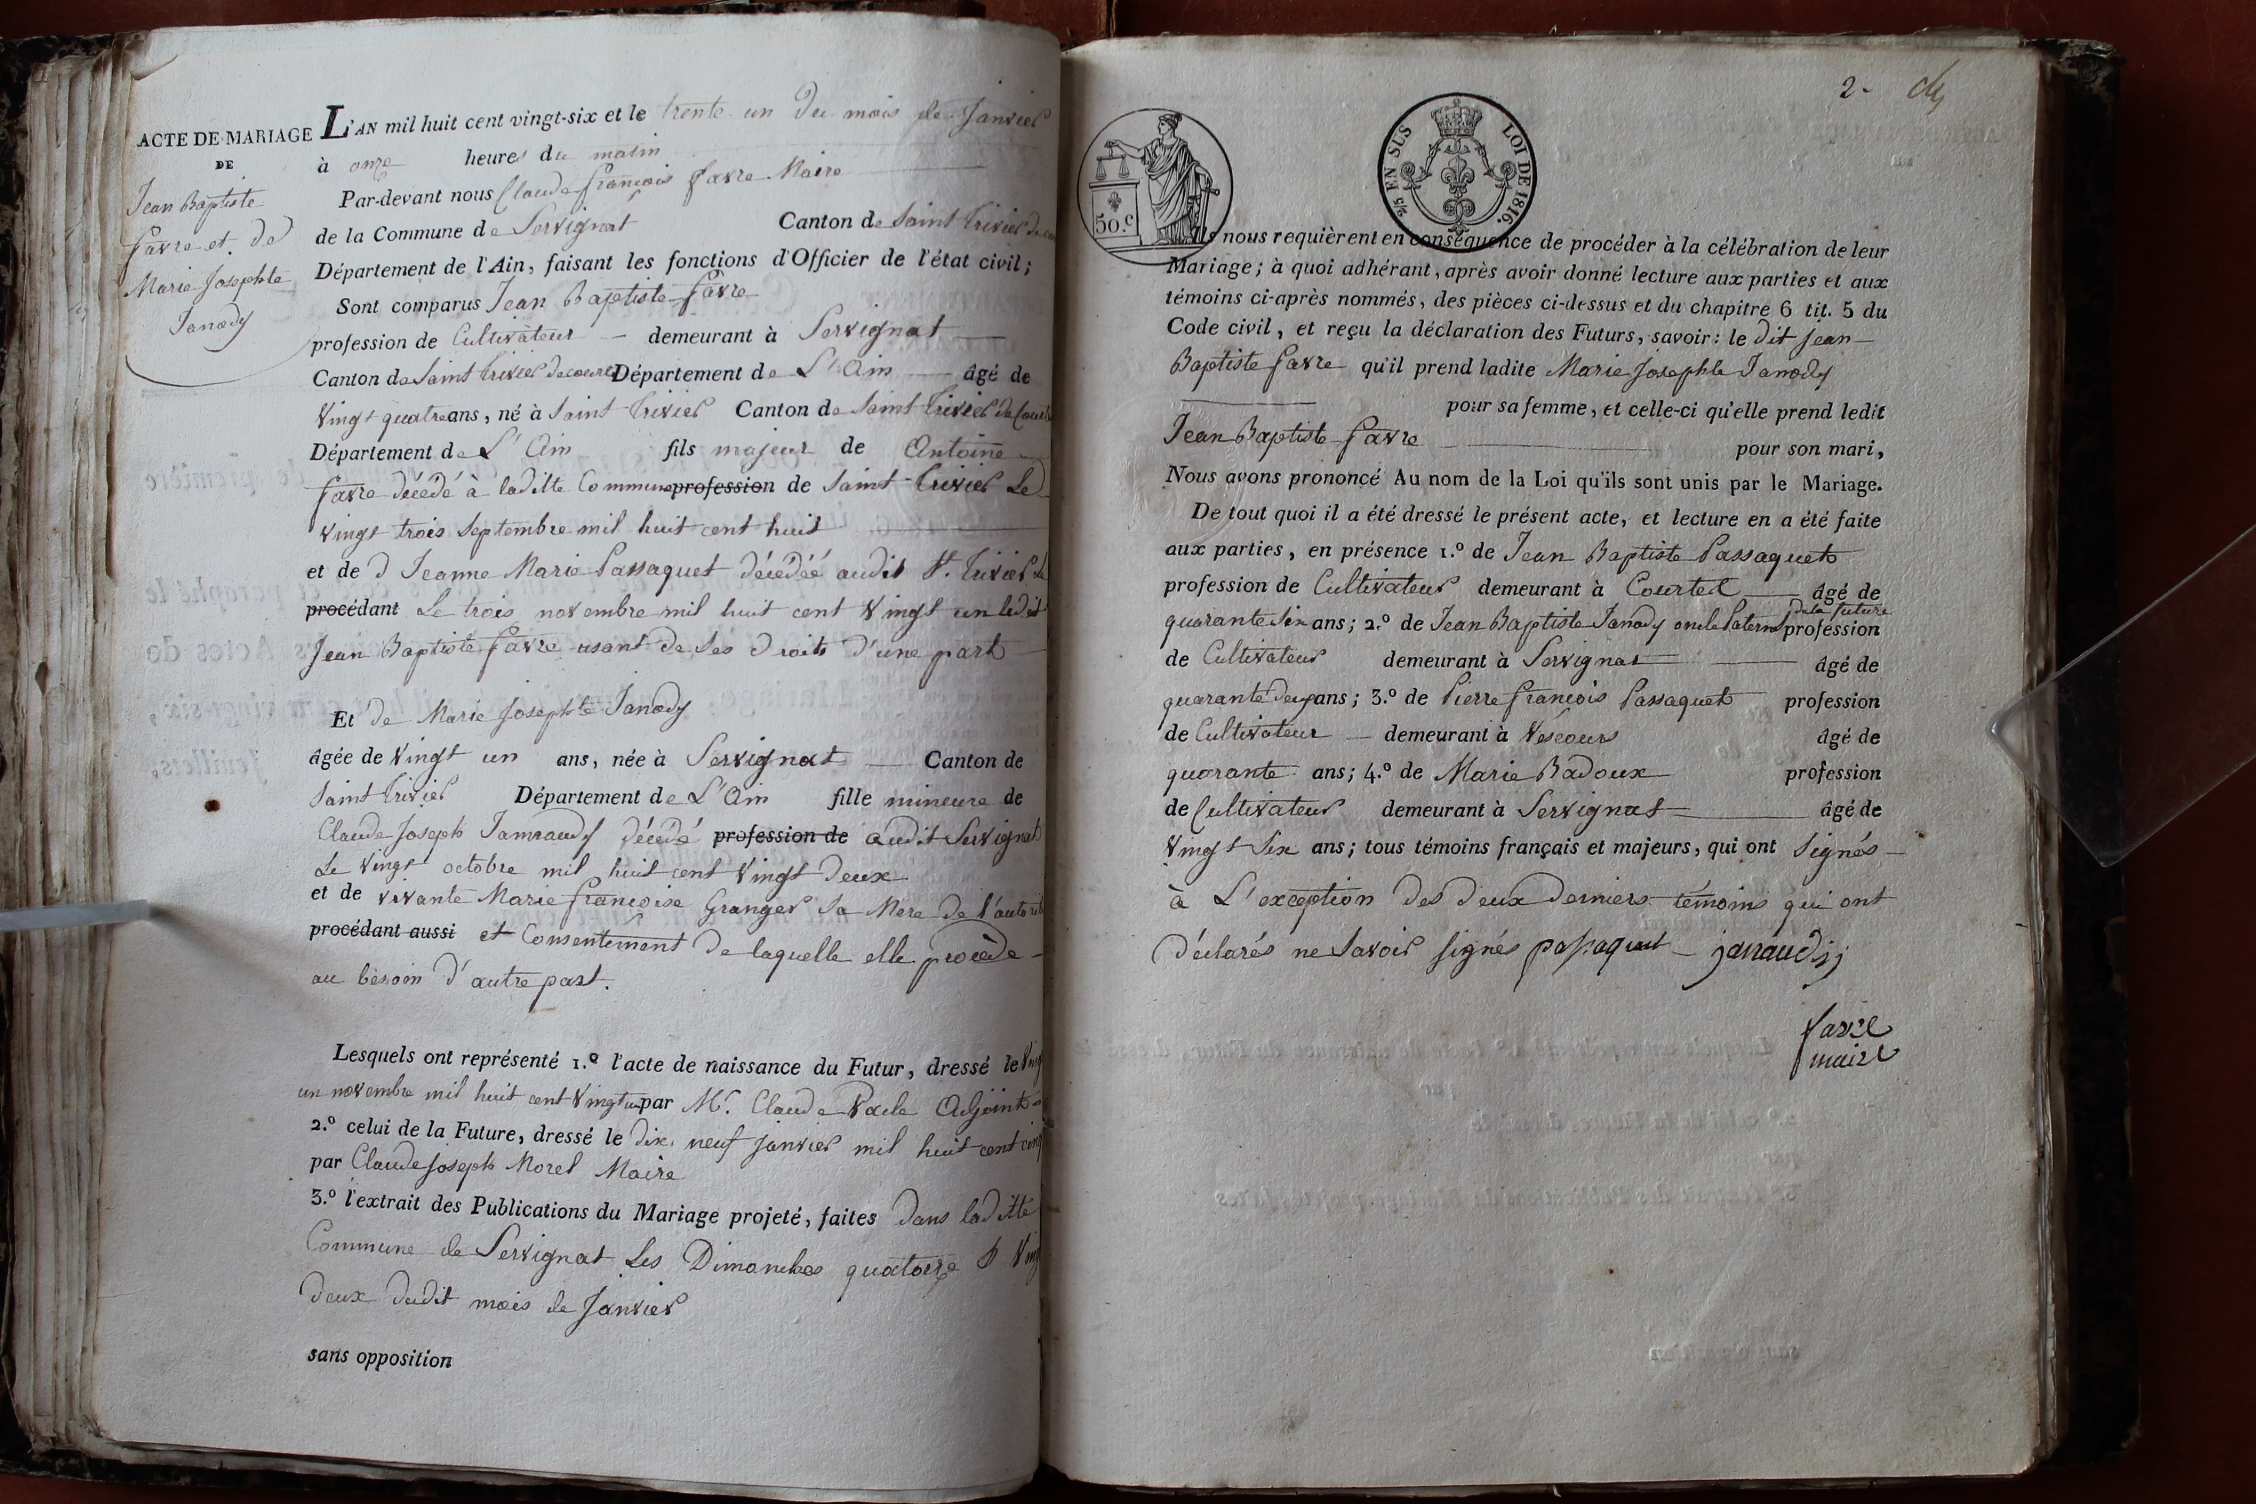 ACTE DE MARIAGE
DE
Jean Baptiste
favre et de
Marie Josephte
Janody
L'AN mil huit cent vingt-six et le trente un du mois de Janvier
à onze heures du matin
Par-devant nous Claude françois favre Maire
de la Commune de Servignat Canton de Saint Trivier de
Département de l'Ain, faisant les fonctions d'Officier de l'état civil;
Sont comparus Jean Baptiste favre
profession de Cultivateur demeurant à Servignat
Canton de Saint Trivier de courtes Département de L'Ain âgé de
Vingt quatre ans, né à Saint Trivier Canton de Saint Trivier de Courtes
Département de L'Ain fils majeur de Antoine
favre décédé à laditte Commune profession de Saint Trivier Le
vingt trois Septembre mil huit cent huit
et de d Jeanne Marie Passaquet décédéé audit St. Trivier Le
procédant Le trois novembre mil huit cent Vingt un ledit
Jean Baptiste favre usant de Ses droits d'une part
Et de Marie Josephte Janody
âgée de Vingt un ans, née à Servignat Canton de
Saint Trivier Département de L'Ain fille mineure de
Claude Joseph Jamraudy décédé profession de audit Servignat
Le Vingt octobre mil huit cent Vingt deux
et de vivante Marie françoise Granger Sa Mere de l'autorité
procédant aussi et Consentement de laquelle elle procède
au besoin d'autre part.
Lesquels ont représenté 1.º l'acte de naissance du Futur, dressé le Ving
un novembre mil huit cent Vingt un par Mr. Claude Adjoint
2.º celui de la Future, dressé le dix neuf Janvier mil huit cent cinq
par Claude Joseph Morel Maire
3.º l'extrait des Publications du Mariage projeté, faites Dans laditte
Commune de Servignat Les Dimanches quatorze & Ving
deux dudit mois de Janvier
sans opposition
2
50.c
2/5 EN SUS LOI DE 1816.
Ils nous requièrent en conséquence de procéder à la célébration de leur
Mariage; à quoi adhérant, après avoir donné lecture aux parties et aux
témoins ci-après nommés, des pièces ci-dessus et du chapitre 6 tit. 5 du
Code civil, et reçu la déclaration des Futurs, savoir: le dit Jean
Baptiste favre qu'il prend ladite Marie Josephte Janody
pour sa femme, et celle-ci qu'elle prend ledit
Jean Baptiste favre pour son mari,
Nous avons prononcé Au nom de la Loi qu'ils sont unis par le Mariage.
De tout quoi il a été dressé le présent acte, et lecture en a été faite
aux parties, en présence 1.º de Jean Baptiste Passaquet
profession de Cultivateur demeurant à Courtes âgé de
quarante Six ans; 2.º de Jean Baptiste Janody oncle Paternel de la future profession
de Cultivateur demeurant à Servignat âgé de
quarante deux ans; 3.º de Pierre françois Passaquet profession
de Cultivateur demeurant à Vescours âgé de
quarante ans; 4.º de Marie Badoux profession
de Cultivateur demeurant à Servignat âgé de
Vingt Six ans; tous témoins français et majeurs, qui ont Signés
à L'exception des deux derniers témoins qui ont
déclarés ne Savoir Signés passaquet janaudy
favre
maire